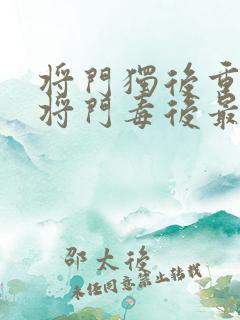 将門獨後重
将門毒後最
邵太後
未经同意禁止转载